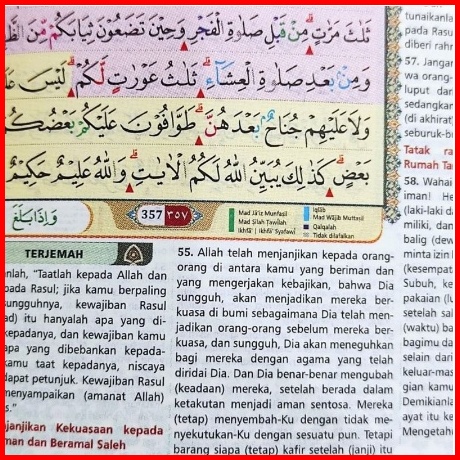 ثَلٰثَ مَرّٰتٍۗ مِنْ قَبْلِ صَلٰوةِ الْفَجْرِ وَحِيْنَ تَضَعُوْنَ ثِيَابَكُمْ مِّنَ
وَمِنْۢ بَعْدِ صَلٰوةِ الْعِشَاۤءِۗ ثَلٰثُ عَوْرٰتٍ لَّكُمْۗ لَيْسَ
وَلَا عَلَيْهِمْ جُنَاحٌۢ بَعْدَهُنَّۗ طَوَّافُوْنَ عَلَيْكُمْ بَعْضُكُمْ
بَعْضٍۗ كَذٰلِكَ يُبَيِّنُ اللّٰهُ لَكُمُ الْاٰيٰتِۗ وَاللّٰهُ عَلِيْمٌ حَكِيْمٌ
وَاِذَا بَلَغَ
357 ٣٥٧
Mad Jā'iz Munfasil
Mad Silah Tawilah
Ikhfā' | Ikhfā' Syafawi
Iqlāb
Mad Wājib Muttasil
Qalqalah
Tidak dilafalkan
TERJEMAH
anlah, "Taatlah kepada Allah dan
pada Rasul; jika kamu berpaling
sungguhnya, kewajiban Rasul
ad) itu hanyalah apa yang di-
kepadanya, dan kewajiban kamu
apa yang dibebankan kepada-
kamu taat kepadanya, niscaya
dapat petunjuk. Kewajiban Rasul
menyampaikan (amanat Allah)
s."
njanjikan Kekuasaan kepada
man dan Beramal Saleh
55. Allah telah menjanjikan kepada orang-
orang di antara kamu yang beriman dan
yang mengerjakan kebajikan, bahwa Dia
sungguh, akan menjadikan mereka ber-
kuasa di bumi sebagaimana Dia telah men-
jadikan orang-orang sebelum mereka ber-
kuasa, dan sungguh, Dia akan meneguhkan
bagi mereka dengan agama yang telah
diridai Dia. Dan Dia benar-benar mengubah
(keadaan) mereka, setelah berada dalam
ketakutan menjadi aman sentosa. Mereka
(tetap) menyembah-Ku dengan tidak me-
nyekutukan-Ku dengan sesuatu pun. Tetapi
barang siapa (tetap) kafir setelah (janji) itu
tunaikanla
pada Rasu
diberi rahn
57. Jangan
wa orang-
luput dar
sedangkan
(di akhirat)
seburuk-bu
Tatak ra
Rumah Ta
58. Wahai
iman! He
(laki-laki da
miliki, dan
balig (dew
minta izin
(kesempat
Subuh, ke
pakaian (lu
setelah sal
(waktu) ba
bagimu da
selain dari
keluar-mas
gian kamu
Demikianla
ayat itu ke
Mengetah